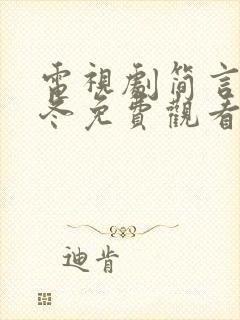 電視劇簡言
冬免費觀看
迪肯